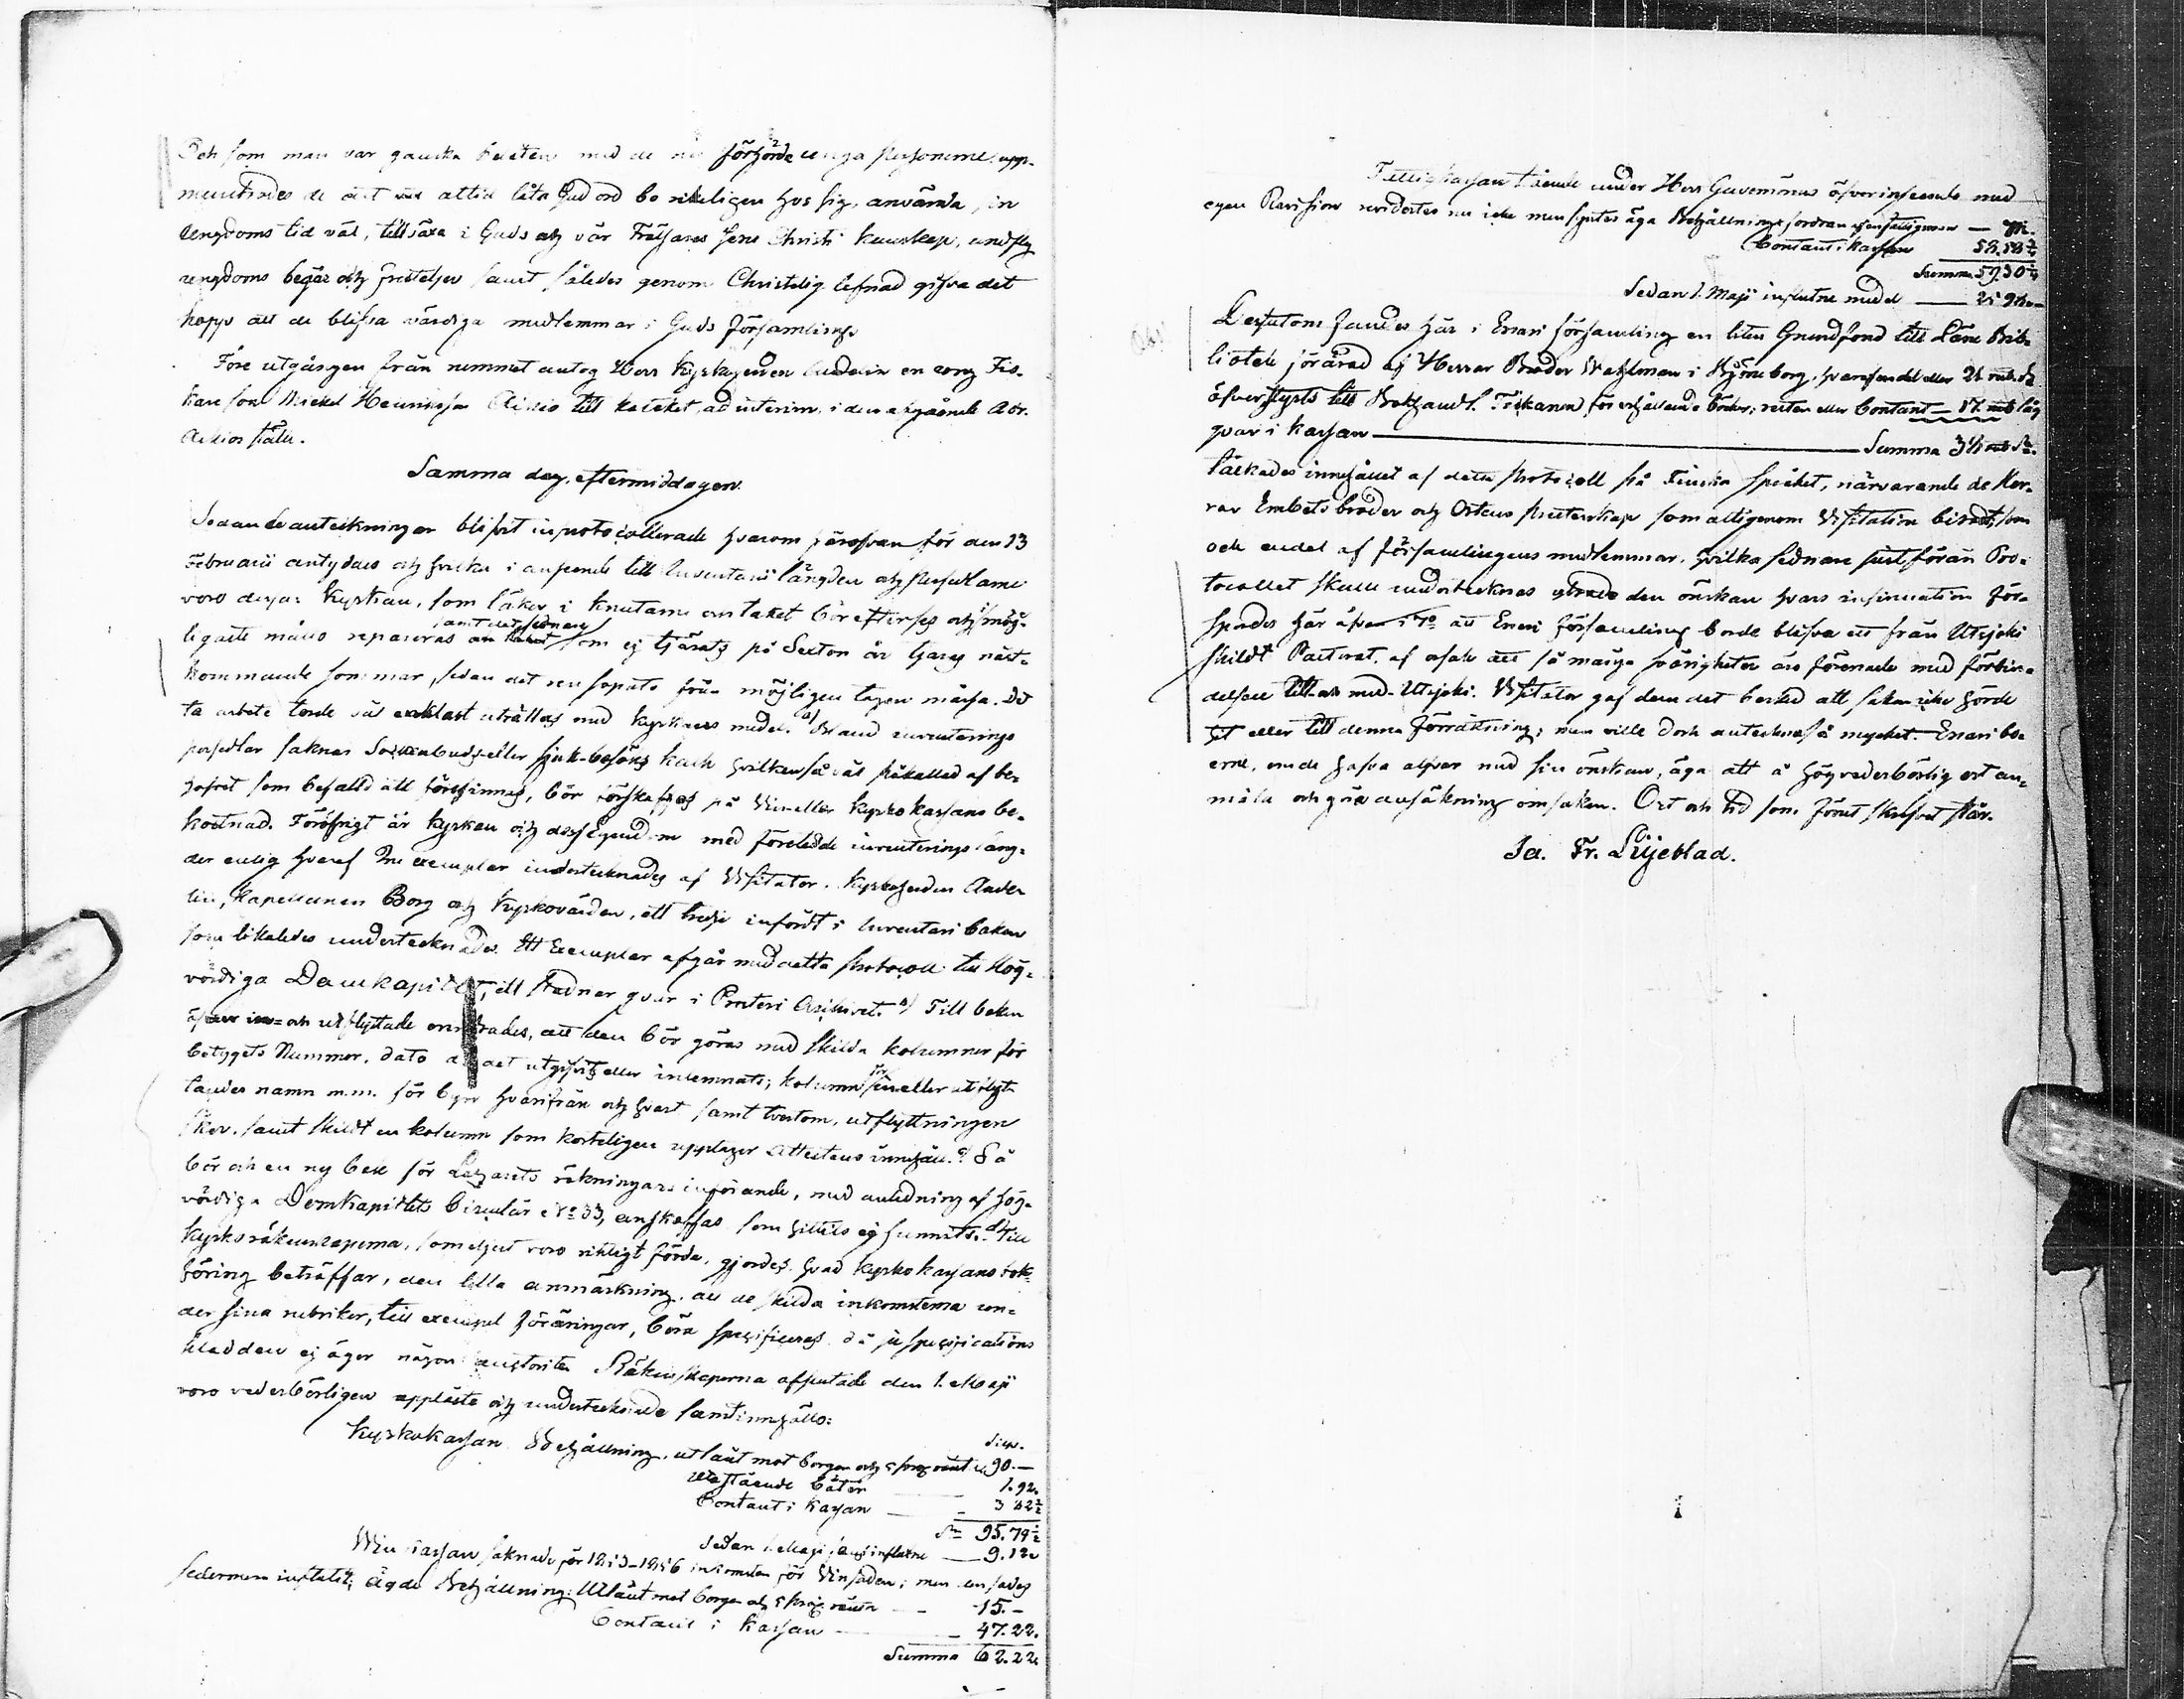 Och som man var ganska belåten med de nu förhörda unga personerne, upp-
muntrades de att altid låta Guds ord bo rikeligen hos sig, använda sin
ungdoms tid väl, tillväxa i Guds och vår Frälsares Jesu Christi kunskap, undfly
ungdoms begär och frestelser samt således genom Christelig lefnad gifva det
hopp att de blifva värdiga medlemmar i Guds församling.
Före utgången från rummet antog Herr Kyrkoherden en ung Fis-
kare son Mickel Henriksson Aikio till kateket ad interim, i den afgående Abr.
Aikios ställe.
Samma dag, eftermiddagen.
Sedan de anteckningar blifvit inprotocollerade hvarom härofvan för den 13
Februarii antydes och hvilka i anseende till Inventarii längden och persedlarne
voro dessa: Kyrkan, som läker i knutarne om taket bör efterses och i mög-
ligaste måtto repareras samt det sednare som ej tjärats på Sexton år tjäras näst-
kommande sommar, sedan det rensopats från möjligen tagen måssa. Det-
ta arbete torde väl enklast uträttas med kyrkans medel. a) Bland inventerings
persedlar saknas Sockenbuds- eller sjuk-besöks kalk hvilken så väl påkallad af be-
hofvet som befalld att förefinnas, bör förskaffas på Vin- eller Kyrko kassans be-
kostnad. Föröfrigt är kyrkan och dess Egendom med föreledde inventerings läng-
der enlig hvaraf Tre exemplar undertecknades af Visitator, Kyrkoherden Ande-
lin, Kapellanen Borg och Kyrkovärden, ett tredje infördt i Inventari boken
som likaledes undertecknades. Ett Exemplar afgår med detta Protocoll till Hög-
vördiga Domkapitlet, ett stadnar qvar i Contrteri Arkivet. Till boken
öfver in- och utflyttade områdes, att den bör göras med skilda kolumner för
betygets Nummer, dato a det utgifvits eller inlemnats; kolumn för in eller utflyt-
tandes namn m.m. för byn hvarifrån och hvart samt tvertom, utflyttningen
sker, samt skildt en kolumn som korteligen upptager Attestens innehåll. Så
bör och en ny bok för Lazarets räkningars införande, med anledning af Hög-
vördiga Domkapitlets Circulär No 33, anskaffas som hittils ej funnits. d) Till
Kyrkoräkenskaperna, som eljest voro riktigt förda, gjordes hvad kyrko kassans bok-
föring beträffar, den lilla anmärkning, att de skilda inkomsterna un-
der sina rubriker, till exempel föräringar, böra specificeras då ju specifications
kladden ej äger någon auctoritet. Räkenskaperna afslutade den 1. Maji
voro vederbörligen uppläste och undertecknade samt innehålla:
Silfv.
Kyrkokassan Behållning, utlånt mot borgen och 5 proc. ränt 90.—
Utestående böter 1.92.
Contant i Kassan 3 82½
Sa 95.74½
Sedan 1. Maji influtne 9.12
Win kassan saknade för 1855-1856 inkomsten för Vinsäden; men den sades
sedermera influtit; ägde Behållning: Utlånt mot borgen och 5 proc. ränta 15.—
Contant i Kassan 47.22.
Summa 62.22
Fattigkassan stående under Herr Guvernörens öfverinseende med
egen Revision reviderades nu icke men syntes äga Behållning: fordran —
Contant i kassan 58.58
Summa 59.30
Sedan 1. Maji influtne medel — 25
Dessutom fandes här i Enari församling en liten Grundfond till Låne Bib-
liotek förärad af Herrar Bröder Wahlman i Björneborg, hvaraf en del eller 21 rub. S.
öfverflyttats till Bokhandl. Frckanen för erhållande böcker; resten eller Contant — 17. rub låg
qvar i kassan — Summa 38 rub Sr.
Tålkades innehållet af detta Protocoll på Finska språket, närvarande de Her-
rar Embetsbröder och Ortens presterskap som altigenom Visitation bistodt, som
och endel af församlingens medlemmar, hvilka sednare just förän Pro-
tocollet skulle undertecknas yttrade den önskan hvars insinuation för-
spordes här äfven att Enari församling borde blifva ett från Utsjoki
skildt Pastorat, af orsak att så många svårigheter äro förenade med förbin-
delsen med Utsjoki. Visitator gaf dem det besked att saken icke hörde
hit eller till denna förrättning; men ville dock anteckna så mycket: Enaribo-
erne, om de hafva alfvar med sin önskan, äga att å högvederbörlig ort an-
mäla och göra ansökning om saken. Ort och tid som förut skrifvet står.
Ja. Fr. Liljeblad.